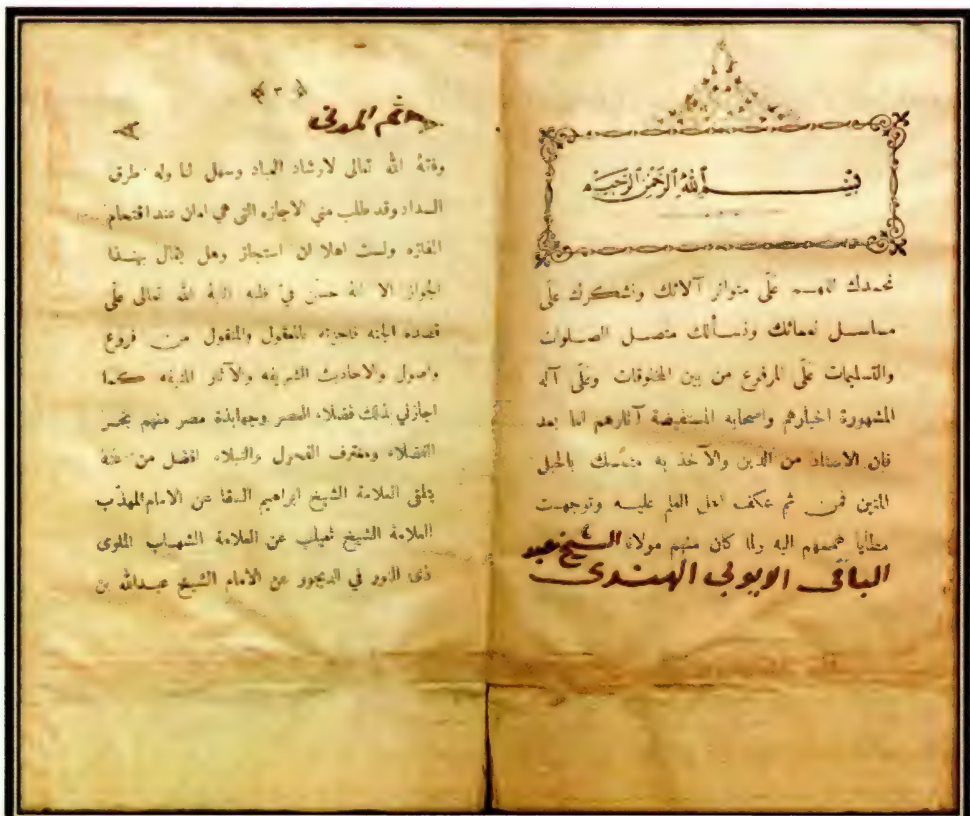 بسم الله الرحمن الرحيم
نحمدك اللهم على متواتر آلائك ونشكرك على
مسلسل نعمائك ونسألك متصل الصلوات
والتسليمات على المرفوع من بين المخلوقات وعلى آله
المشهورة اخبارهم واصحابه المستفيضة آثارهم اما بعد
فان الاسناد من الدين والآخذ به متمسك بالحبل
المتين فمن ثم عكف اهل العلم عليه وتوجهت
مطايا هممهم اليه ولما كان منهم مولانا الشيخ عبد
الباقى الايوبي الهندى
﴿ ٣ ﴾
ثم المدنى
وفقه الله تعالى لارشاد العباد وسهل لنا وله طرق
السداد وقد طلب مني الاجازه التى هي امان عند اقتحام
المفازه ولست اهلا لان استجاز وهل يقال بهذا
الجواز الا انه حسن في ظنه اثابه الله تعالى على
قصده الجنه فاجزته بالمعقول والمنقول من فروع
واصول والاحاديث الشريفه والآثار المنيفه كما
اجازني بذلك فضلاء العصر وجهابذة مصر منهم
الفضلاء ومغترف الفحول والنبلاء افضل من عنه
يتلقى العلامة الشيخ ابراهيم السقا عن الامام المهذب
العلامة الشيخ ثعيلب عن العلامة الشهاب الملوى
ذى النور في الديجور عن الامام الشيخ عبدالله بن